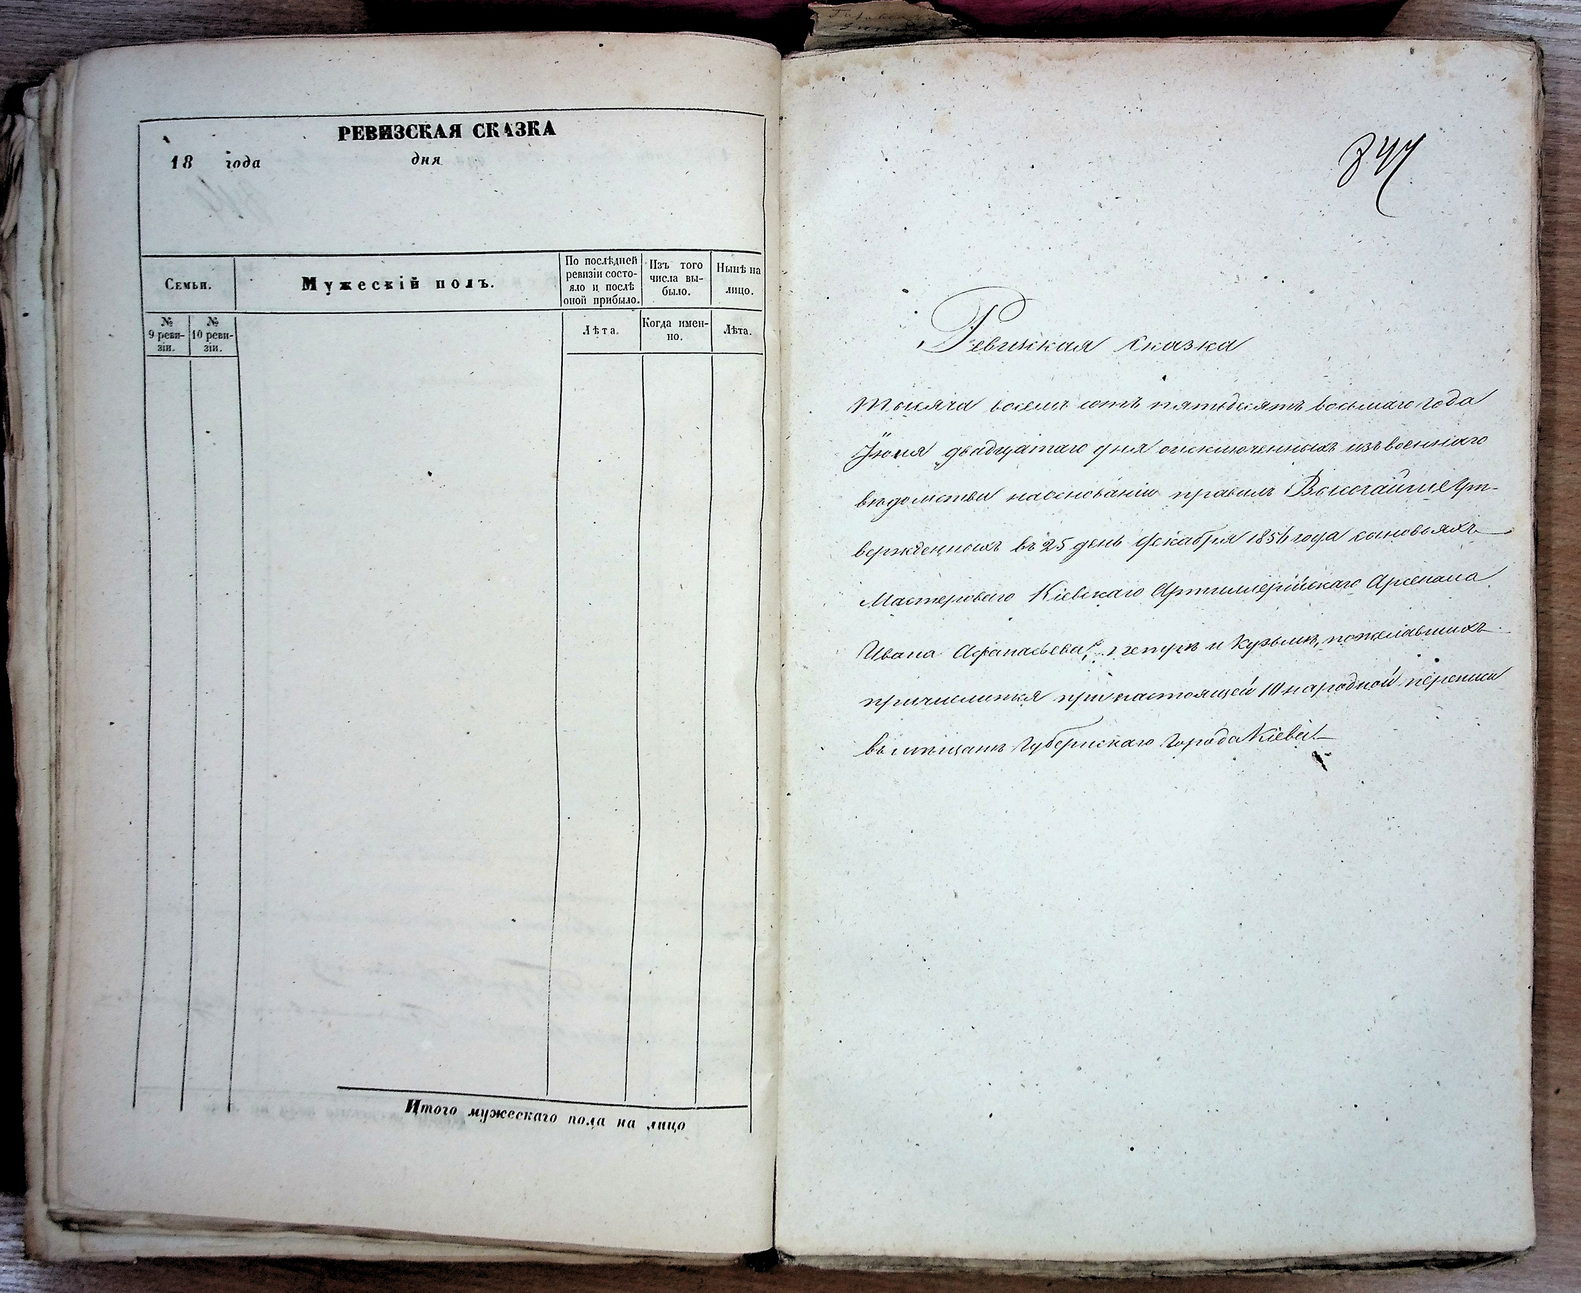 РЕВИЗСКАЯ СКАЗКА
18 года дня
Семьи.
Мужескій полъ.
По послѣдней
ревизіи состо-
яло и послѣ
оной прибыло.
Изъ того
числа вы-
было.
Нынѣ на
лицо.
№
9 реви-
зіи.
№
10 реви-
зіи.
Лѣта.
Когда имен-
но.
Лѣта.
Итого мужескаго пола на лицо
847
Ревизская сказка
тысяча восемь сотъ пятьдесятъ восьмаго года
Іюня двадцатаго дня о исключенныхъ изъ военнаго
вѣдомства на основаніи правилъ Высочайше Ут-
вержденныхъ въ 25 день Декабря 1856 года сыновьяхъ
Мастероваго Кіевскаго Артиллерійскаго Арсенала
Ивана Афанасьева, Петрѣ и Кузьмѣ, пожелавшихъ
причислиться при настоящей 10 народной переписи
въ мѣщане Губернскаго Города Кіева